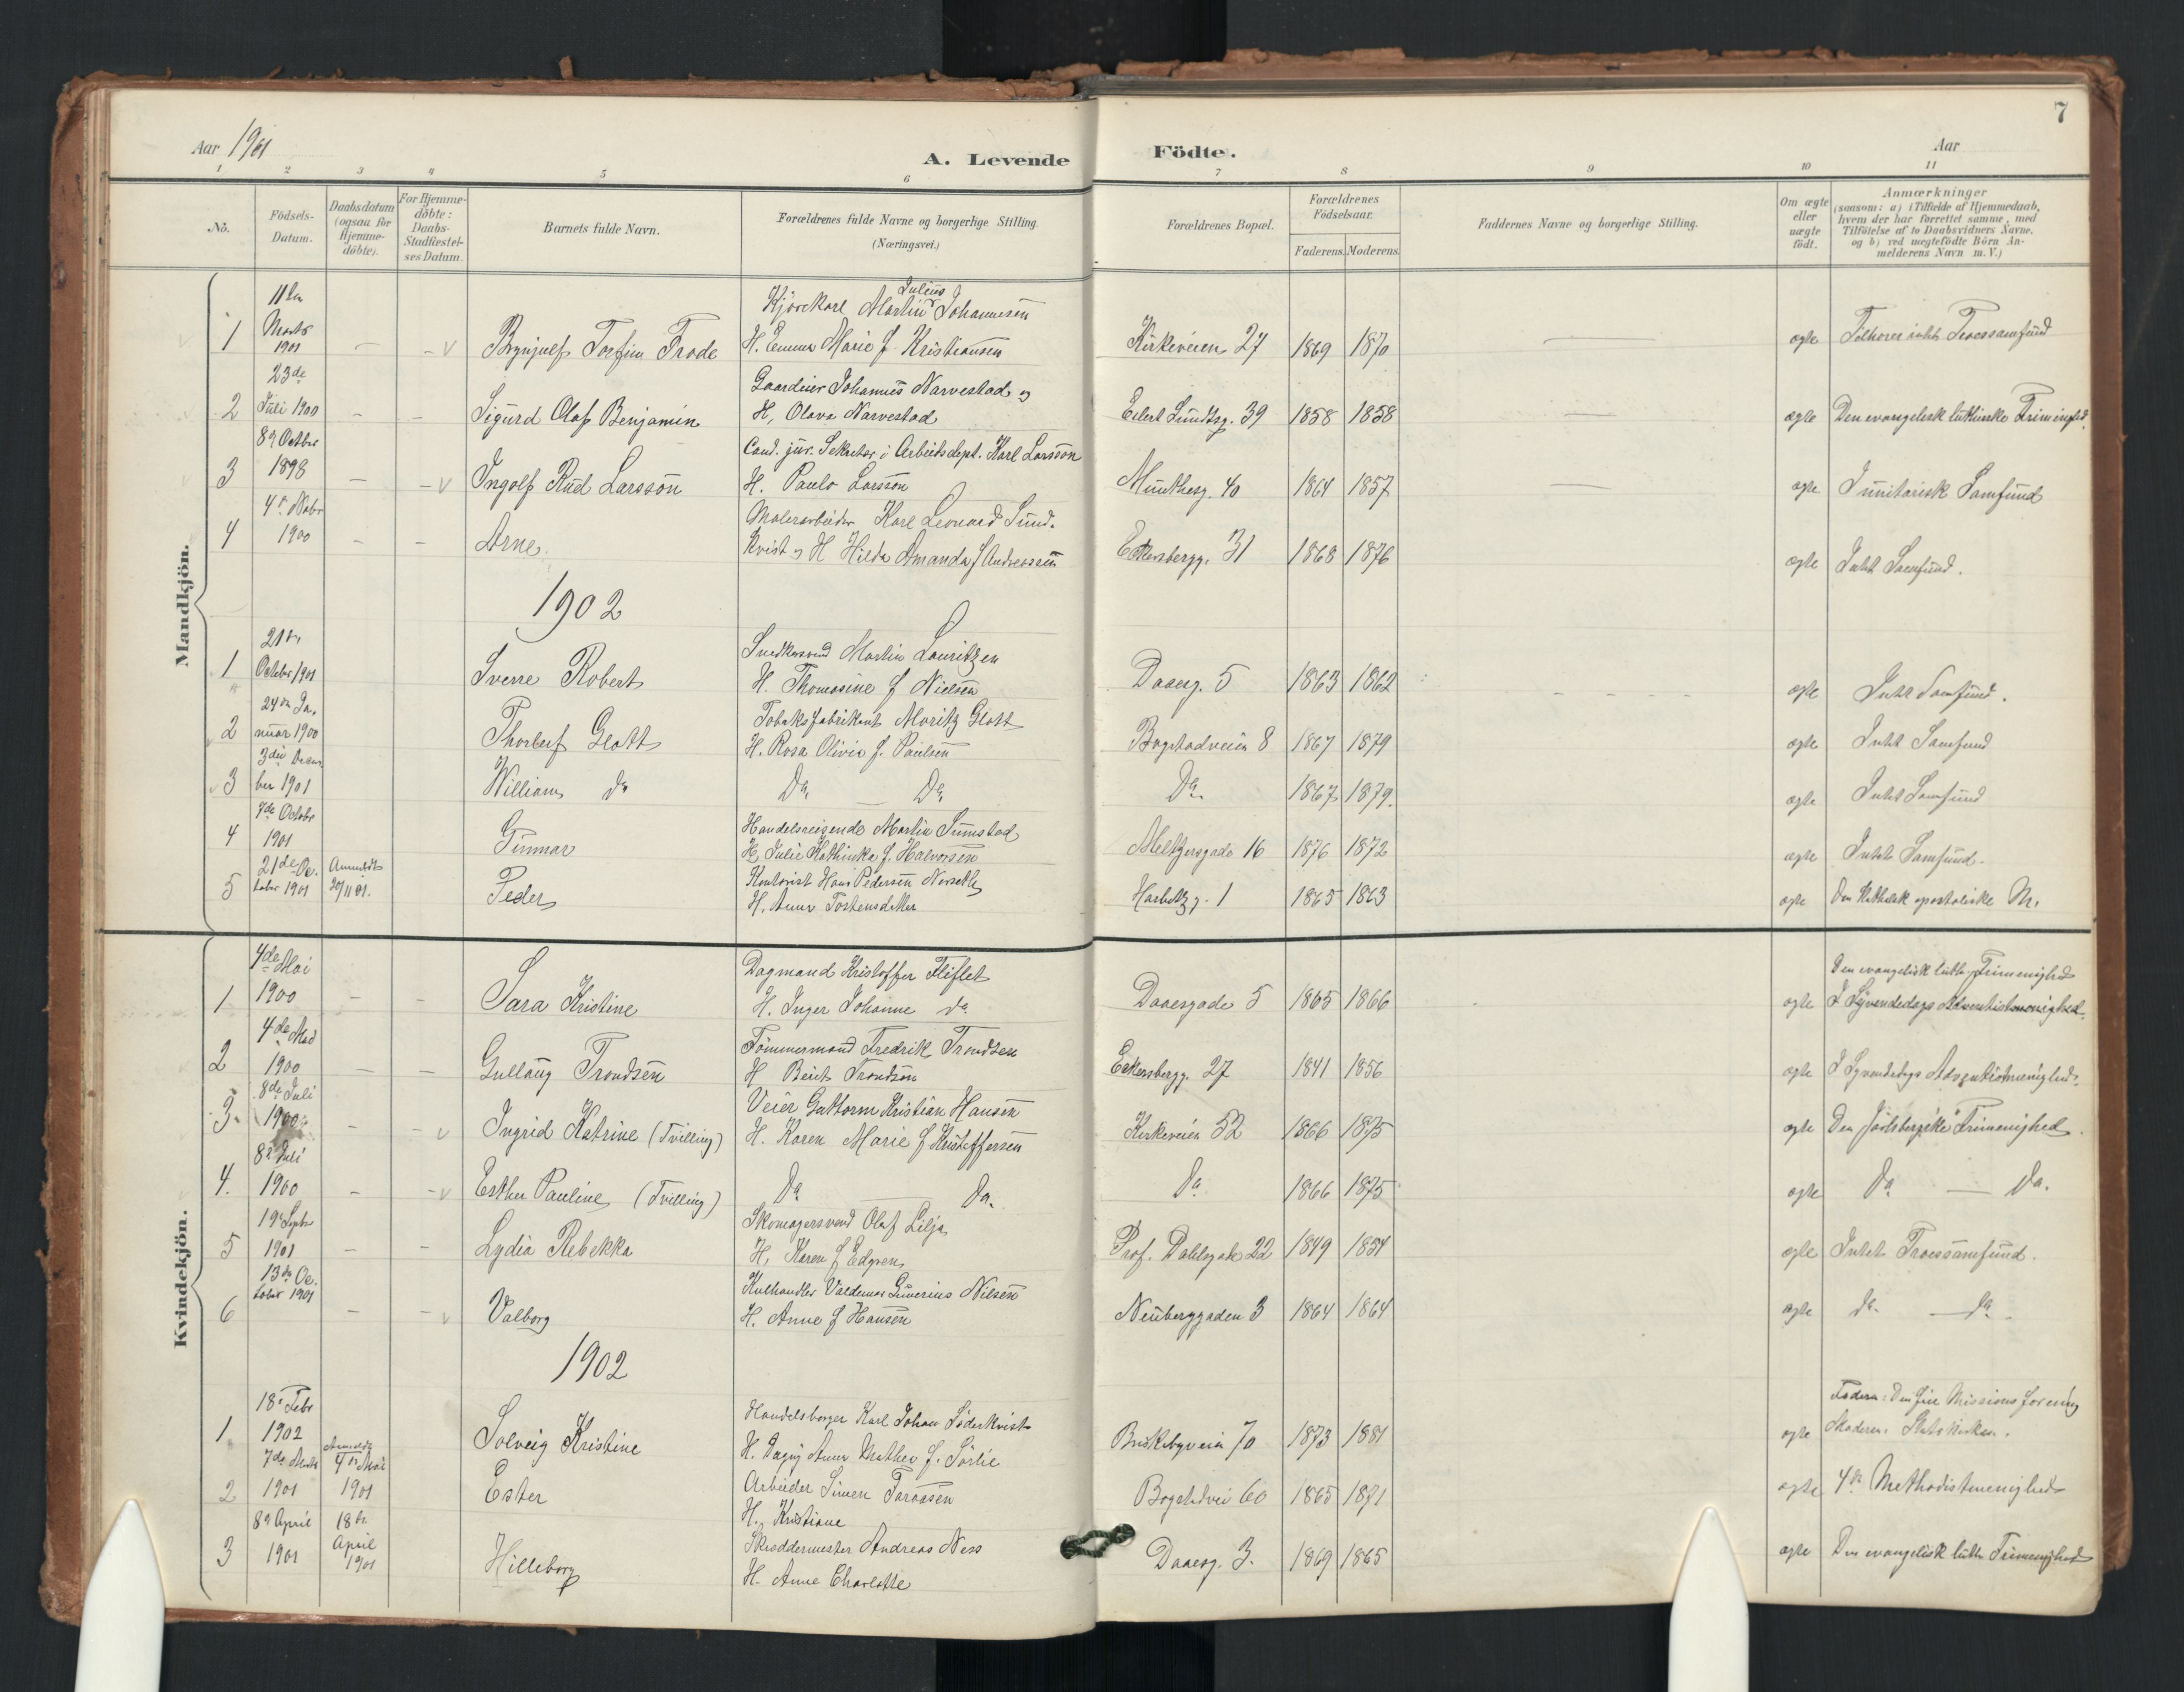 7
Aar 1901
A. Levende Födte.
Aar
1 2 3 4 5 6 7 8 9 10 11
No.
Födsels-Datum.
Daabsdatum (ogsaa for Hjemme-döbte).
For Hjemme-döbte: Daabs-Stadfæstel-ses Datum.
Barnets fulde Navn.
Forældrenes fulde Navne og borgerlige Stilling. (Næringsvei.)
Forældrenes Bopæl.
Forældrenes Födselsaar.
Faderens. Moderens.
Faddernes Navne og borgerlige Stilling.
Om ægte eller uægte födt.
Anmærkninger
(saasom: a) i Tilfælde af Hjemmedaab,
hvem der har forrettet samme, med
Tilföielse af to Daabsvidners Navne,
og b) ved uægtefödte Börn An-
melderens Navn m. V.)
Mandkjön.
Julius
11te Kjørekarl Martin Johannesen
1 Marts 1901 — – v Brynjulf Torfin Frode H. Emma Marie f. Kristiansen Kirkeveien 27 1869 1870 — ægte Tilhører intet Troessamfund
23de Gaardeier Johannes Narvestad og
2 Juli 1900 – – Sigurd Olaf Benjamin H. Olava Narvestad Eilert Sundtsg. 39 1858 1858 — ægte Den evangelisk lutherske Frimenighed.
8de Octbr Cand. jur. Sekretær i Arbeidsdept. Karl Larsson
3 1898 – – v Ingolf Rud Larsson H. Paula Larsson Munthesg. 40 1864 1857 — ægte I unitarisk Samfund
4de Nobr Malerarbeider Karl Leonard Sund-
4 1900 – – Arne kvist og H Hilda Amanda f Andreassen Eckersbergg. 31 1868 1876 ægte Intet Samfund.
1902
21de Snedkersvend Martin Lauritzen
1 October 1901 Sverre Robert H. Thomasine f Nielsen Daaesg. 5 1863 1862 – – – – ægte Intet Samfund.
24de Ja- Tobaksfabrikant Moritz Glott
2 nuar 1900 Thorleif Glott H. Rosa Olivia f. Paulsen Bogstadveien 8 1867 1879 ægte Intet Samfund
3die Decem
3 ber 1901 William Do Do — Do Do 1867 1879. ægte Intet Samfund
7de Octobr Handelsreisende Martin Sumstad
4 1901 Gunnar H. Julie Kathinka f. Halvorsen Meltzersgade 16 1876 1872 ægte Intet Samfund.
21de Oc- Anmeldt Kontorist Hans Pedersen Norseth
5 tober 1901 20/11 01. Peder H. Anna Tostensdatter Harbitzg. 1 1865 1863 ægte Den Katholsk apostoliske M.
Kvindekjön.
4de Mai Dagmand Kristoffer Fliflet Den evangelisk luth. Frimenighed
1 1900 – – Sara Kristine H. Inger Johanne do Daaesgade 5 1865 1866 ægte I Syvendedags Adventistmenighed.
4de Tömmermand Fredrik Trondsen
2 1900 – – Gullaug Trondsen H Berit Trondsen Eckersbergg. 27 1841 1856 ægte I Syvendedags Adventistmenighed.
8de Juli Veier Guttorm Kristian Hansen
3. 1900 – – v Ingrid Katrine (Tvilling) H. Karen Marie f Kristoffersen Kirkeveien 52 1866 1875 ægte Den Jarlsbergske Frimenighed.
8de Juli
4. 1900 – – v Esther Pauline (Tvilling) Do — Do. Do 1866 1875 ægte Do — Do.
19de Septr Skomagersvend Olaf Lilja
5 1901 – – Lydia Rebekka H. Karen f Edgren Prof. Dahlsgade 22 1849 1854 ægte Intet Troessamfund.
13de Oc- Kulhandler Valdemar Severius Nilsen
6 tober 1901 – – v Valborg H. Anne f Hansen Neuberggaden 3 1864 1864 ægte do — do
1902
18de Febr Handelsborger Karl Johan Söderkvist Faderen: Den frie Missionsforening
1 1902 Solveig Kristine H. Dagny Anna Mathea f. Sörlie Briskebyveien 70 1873 1881 ægte Moderen: Statskirken.
7de Marts Anmeldt 4de Mai Arbeider Simen Taraasen
2 1901 1901 Ester H. Kristiane Bogstadvei 60 1865 1871 ægte 4de Methodistmenighed
8de April 18de April Skræddermester Andreas Ness
3 1901 1901 Hilleborg H. Anne Charlotte Daaesg. 3. 1869 1865 ægte Den evangelisk luth. Frimenighed